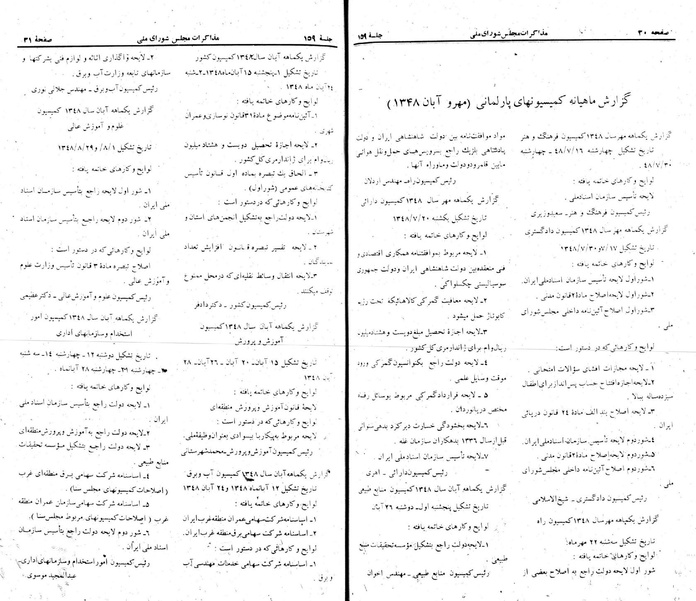 صفحه ۳۰ مذاکرات مجلس شورای ملی جلسه ۱۵۹
گزارش ماهیانه کمیسیونهای پارلمانی (مهر و آبان ۱۳۴۸)
گزارش یکماهه مهر سال ۱۳۴۸ کمیسیون فرهنگ و هنر
تاریخ تشکیل چهارشنبه ۴۸/۷/۱۶ ـ چهارشنبه
۴۸/۷/۳۰
لوایح و کارهای خاتمه یافته :
لایحه تأسیس سازمان اسناد ملی .
رئیس کمیسیون فرهنگ و هنر ـ سعید وزیری
گزارش یکماهه مهر سال ۱۳۴۸ کمیسیون دادگستری
تاریخ تشکیل ۷/۱۷ و ۴۸/۷/۳۰
لوایح و کارهای خاتمه یافته :
۱ـ شور اول لایحه تأسیس سازمان اسناد ملی ایران.
۲ـ شور اول لایحه اصلاح ماده ۲ قانون مدنی .
۳ـ شور اول اصلاح آئین‌نامه داخلی مجلس شورای
ملی .
لوایح و کارهائی که در دستور است:
۱ ـ لایحه مجازات افشای سؤالات امتحانی .
۲ـ لایحه اجازه افتتاح حساب پس‌انداز برای اطفال
سیزده ساله ببالا .
۳ـ لایحه اصلاح بند الف ماده ۲۴ قانون دریائی
ایران.
۴ـ شور دوم لایحه تأسیس سازمان اسناد ملی ایران.
۵ـ شور دوم لایحه اصلاح ماده ۲ قانون مدنی .
۶ـ شور دوم اصلاح آئین‌نامه داخلی مجلس شورای
ملی .
رئیس کمیسیون دادگستری ـ شیخ‌الاسلامی
گزارش یکماهه مهر سال ۱۳۴۸ کمیسیون راه
تاریخ تشکیل سه‌شنبه ۲۲ مهر ماه:
لوایح و کارهای خاتمه یافته :
شور اول لایحه دولت راجع به اصلاح بعضی از
مواد موافقت‌نامه بین دولت شاهنشاهی ایران و دولت
پادشاهی بلژیک راجع بسرویسهای حمل و نقل هوائی
مابین قلمرو دو دولت و ماوراء آنها .
رئیس کمیسیون راه ـ مهندس اردلان
گزارش یکماهه مهر سال ۱۳۴۸ کمیسیون دارائی
تاریخ تشکیل یکشنبه ۴۸/۷/۲۰
لوایح و کارهای خاتمه یافته :
۱ـ لایحه مربوط بموافقتنامه همکاری اقتصادی و
فنی منعقده بین دولت شاهنشاهی ایران و دولت جمهوری
سوسیالیستی چکسلواکی .
۲ـ لایحه معافیت گمرکی کالاهائیکه تحت رژیم
کاپوتاژ حمل میشود .
۳ـ لایحه اجازه تحصیل مبلغ دویست و هشتاد میلیون
ریال وام برای ژاندارمری کل کشور .
۴ـ لایحه دولت راجع بکنوانسیون گمرکی ورود
موقت وسایل علمی .
۵ ـ لایحه قرارداد گمرکی مربوط بوسائل رفاه
مختص دریانوردان .
۶ـ لایحه بخشودگی خسارت دیرکرد بدهی سنواتی
قبل از سال ۱۳۳۹ بدهکاران سازمان غله .
۷ـ لایحه تأسیس سازمان اسناد ملی ایران .
رئیس کمیسیون دارائی ـ اهری
گزارش یکماهه آبان سال ۱۳۴۸ کمیسیون منابع طبیعی
تاریخ تشکیل پنجشنبه اول ـ دوشنبه ۲۶ آبان.
لوایح و کارهای خاتمه یافته :
۱ـ لایحه دولت راجع بتشکیل مؤسسه تحقیقات منابع
طبیعی .
رئیس کمیسیون منابع طبیعی ـ مهندس اخوان
جلسه ۱۵۹ مذاکرات مجلس شورای ملی صفحه ۳۱
گزارش یکماهه آبان سال ۱۳۴۸ کمیسیون کشور
تاریخ تشکیل ۱ـ پنجشنبه ۱۵ آبان ماه ۱۳۴۸ ـ ۲ شنبه
۲۴ آبان ماه ۱۳۴۸ .
لوایح و کارهای خاتمه یافته :
۱ـ آئین‌نامه موضوع ماده ۳۱ قانون نوسازی و عمران
شهری .
۲ـ لایحه اجازه تحصیل دویست و هشتاد میلیون
ریال وام برای ژاندارمری کل کشور .
۳ـ الحاق یک تبصره بماده اول قانون تأسیس
کتابخانه‌های عمومی (شور اول) .
لوایح و کارهائی که در دستور است :
۱ـ لایحه دولت راجع به تشکیل انجمنهای استان و
شهرستان .
۲ـ لایحه تفسیر تبصره قانون افزایش تعداد
نمایندگان .
۳ـ لایحه انتقال وسائط نقلیه‌ای که در محل ممنوع
توقف میکنند .
رئیس کمیسیون کشور ـ دکتر دادفر
گزارش یکماهه آبان سال ۱۳۴۸ کمیسیون
آموزش و پرورش
تاریخ تشکیل ۱۵ آبان ـ ۲۰ آبان ـ ۲۶ آبان ـ ۲۸
آبان ۱۳۴۸
لوایح و کارهای خاتمه یافته :
لایحه قانون آموزش و پرورش منطقه‌ای
لوایح و کارهائی که در دستور است :
لایحه مربوط به پیکار با بیسوادی بعنوان وظیفه ملی .
رئیس کمیسیون آموزش و پرورش ـ محمد شهرستانی
گزارش یکماهه آبان سال ۱۳۴۸ کمیسیون آب و برق
تاریخ تشکیل ۱۲ آبانماه ۱۳۴۸ و ۲۴ آبان ۱۳۴۸
لوایح و کارهای خاتمه یافته :
۱ ـ اساسنامه شرکت سهامی عمران منطقه غرب ایران
۲ ـ اساسنامه شرکت سهامی برق منطقه غرب ایران.
لوایح و کارهائی که در دستور است :
۱ـ اساسنامه شرکت سهامی خدمات مهندسی آب
و برق .
۲ـ لایحه واگذاری اثاثه و لوازم فنی بشرکتها و
سازمانهای تابعه وزارت آب و برق .
رئیس کمیسیون آب و برق ـ مهندس جلالی نوری
گزارش یکماهه آبان سال ۱۳۴۸ کمیسیون
علوم و آموزش عالی
تاریخ تشکیل ۸/۱ و ۴۸/۸/۲۹
لوایح و کارهای خاتمه یافته :
۱ـ شور اول لایحه راجع بتأسیس سازمان اسناد
ملی ایران .
۲ ـ شور دوم لایحه راجع بتأسیس سازمان اسناد
ملی ایران
لوایح و کارهائی که در دستور است :
اصلاح تبصره ماده ۳ قانون تأسیس وزارت علوم و
آموزش عالی .
رئیس کمیسیون علوم و آموزش عالی ـ دکتر عظیمی
گزارش یکماهه آبان سال ۱۳۴۸ کمیسیون امور
استخدام و سازمانهای اداری
تاریخ تشکیل دوشنبه ۱۲ ـ چهارشنبه ۱۴ ـ سه شنبه
ـ چهارشنبه ۲۸ آبانماه .
لوایح و کارهای خاتمه یافته :
۱ـ لایحه دولت راجع بتأسیس سازمان اسناد ملی
ایران .
۲ـ لایحه دولت راجع به آموزش و پرورش منطقه‌ای
۳ـ لایحه دولت راجع بتشکیل مؤسسه تحقیقات
منابع طبیعی .
۴ـ اساسنامه شرکت سهامی برق منطقه‌ای غرب
( اصلاحات کمیسیونهای مجلس سنا ) .
۵ـ اساسنامه شرکت سهامی سازمان عمران منطقه
غرب ( اصلاحات کمیسیونهای مربوط مجلس سنا ) .
۶ ـ شور دوم لایحه دولت راجع بتشکیل سازمان
اسناد ملی ایران .
رئیس کمیسیون امور استخدام و سازمانهای اداری ـ
عبدالمجید موسوی